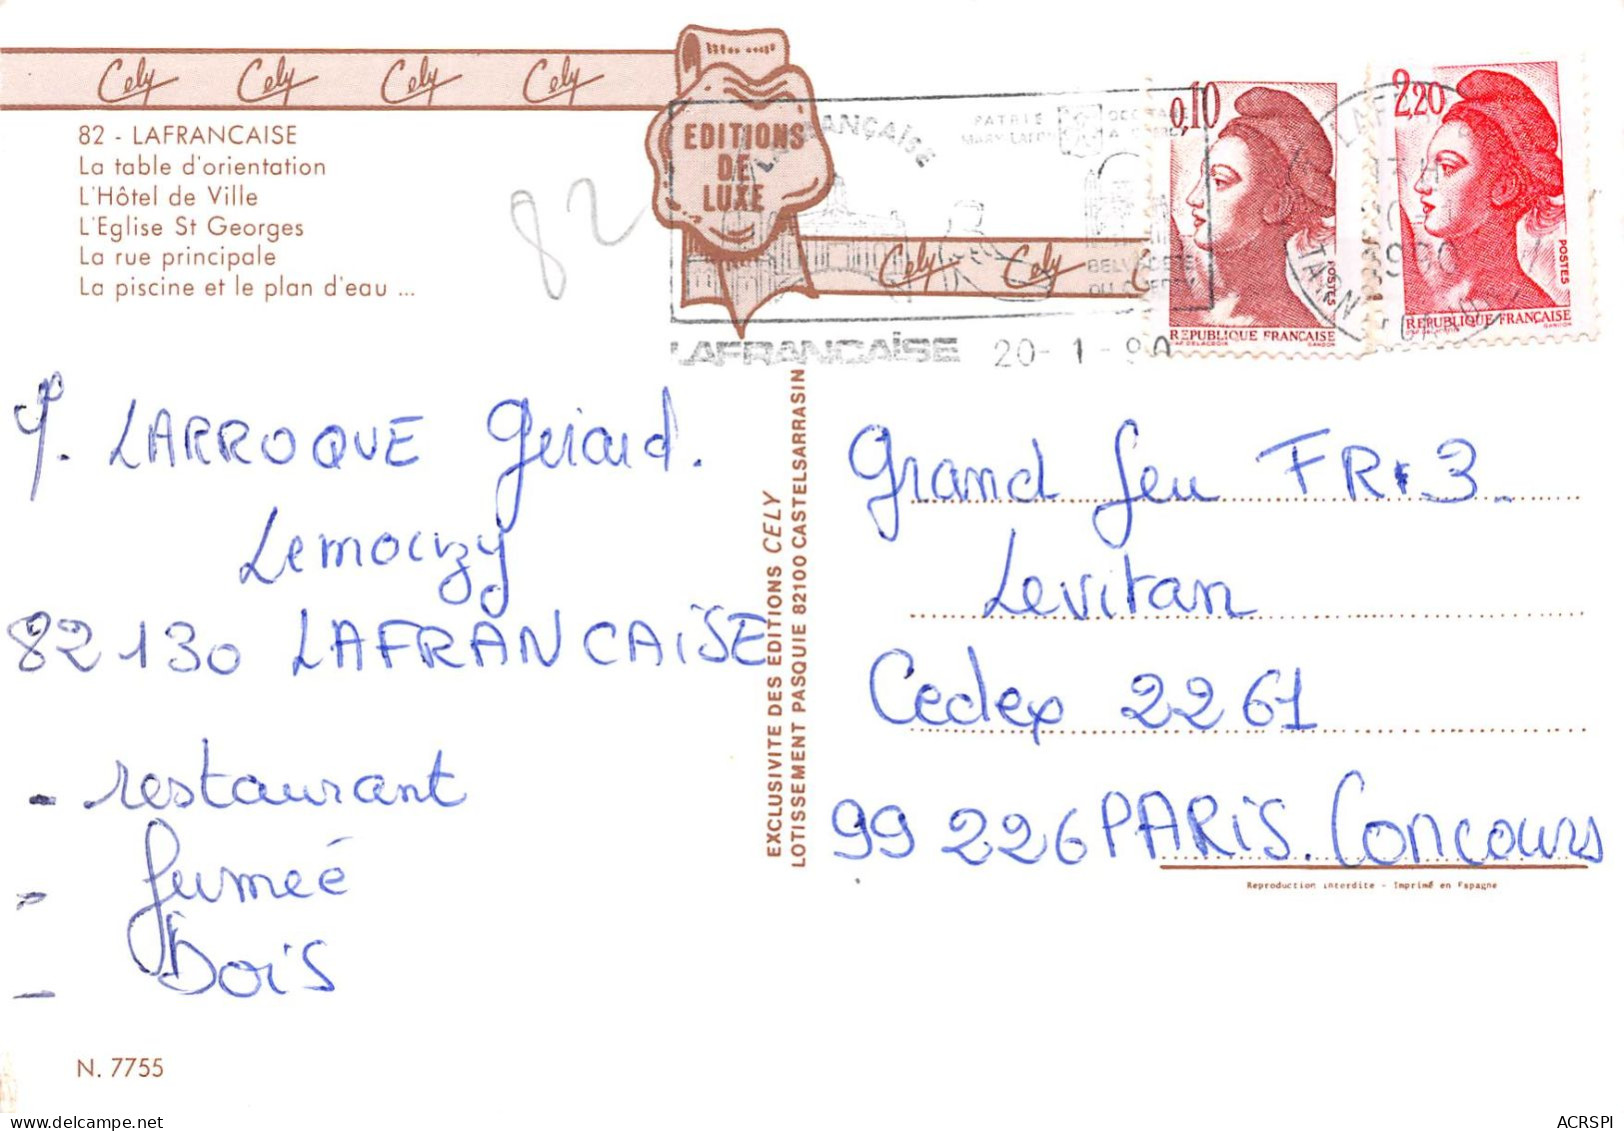 Cely Cely Cely Cely
82 - LAFRANCAISE
La table d'orientation
L'Hôtel de Ville
L'Eglise St Georges
La rue principale
La piscine et le plan d'eau ...
82
EDITIONS
DE
LUXE
LAFRANÇAISE
PATRIE
Cely Cely
BELVEDERE
DU QUERCY
LAFRANCAISE 20-1-90
0,10
POSTES
REPUBLIQUE FRANÇAISE
2,20
POSTES
REPUBLIQUE FRANÇAISE
LARROQUE Gérard.
Lemouzy
82130 LAFRANCAISE
- restaurant
- fumeé
- Bois
EXCLUSIVITE DES EDITIONS CELY
LOTISSEMENT PASQUIE 82100 CASTELSARRASIN
Grand feu FR.3
Levitan
Cedex 2261
99 226 PARIS. Concours
Reproduction interdite - Imprimé en Espagne
N. 7755
delcampe.net
ACRSPI